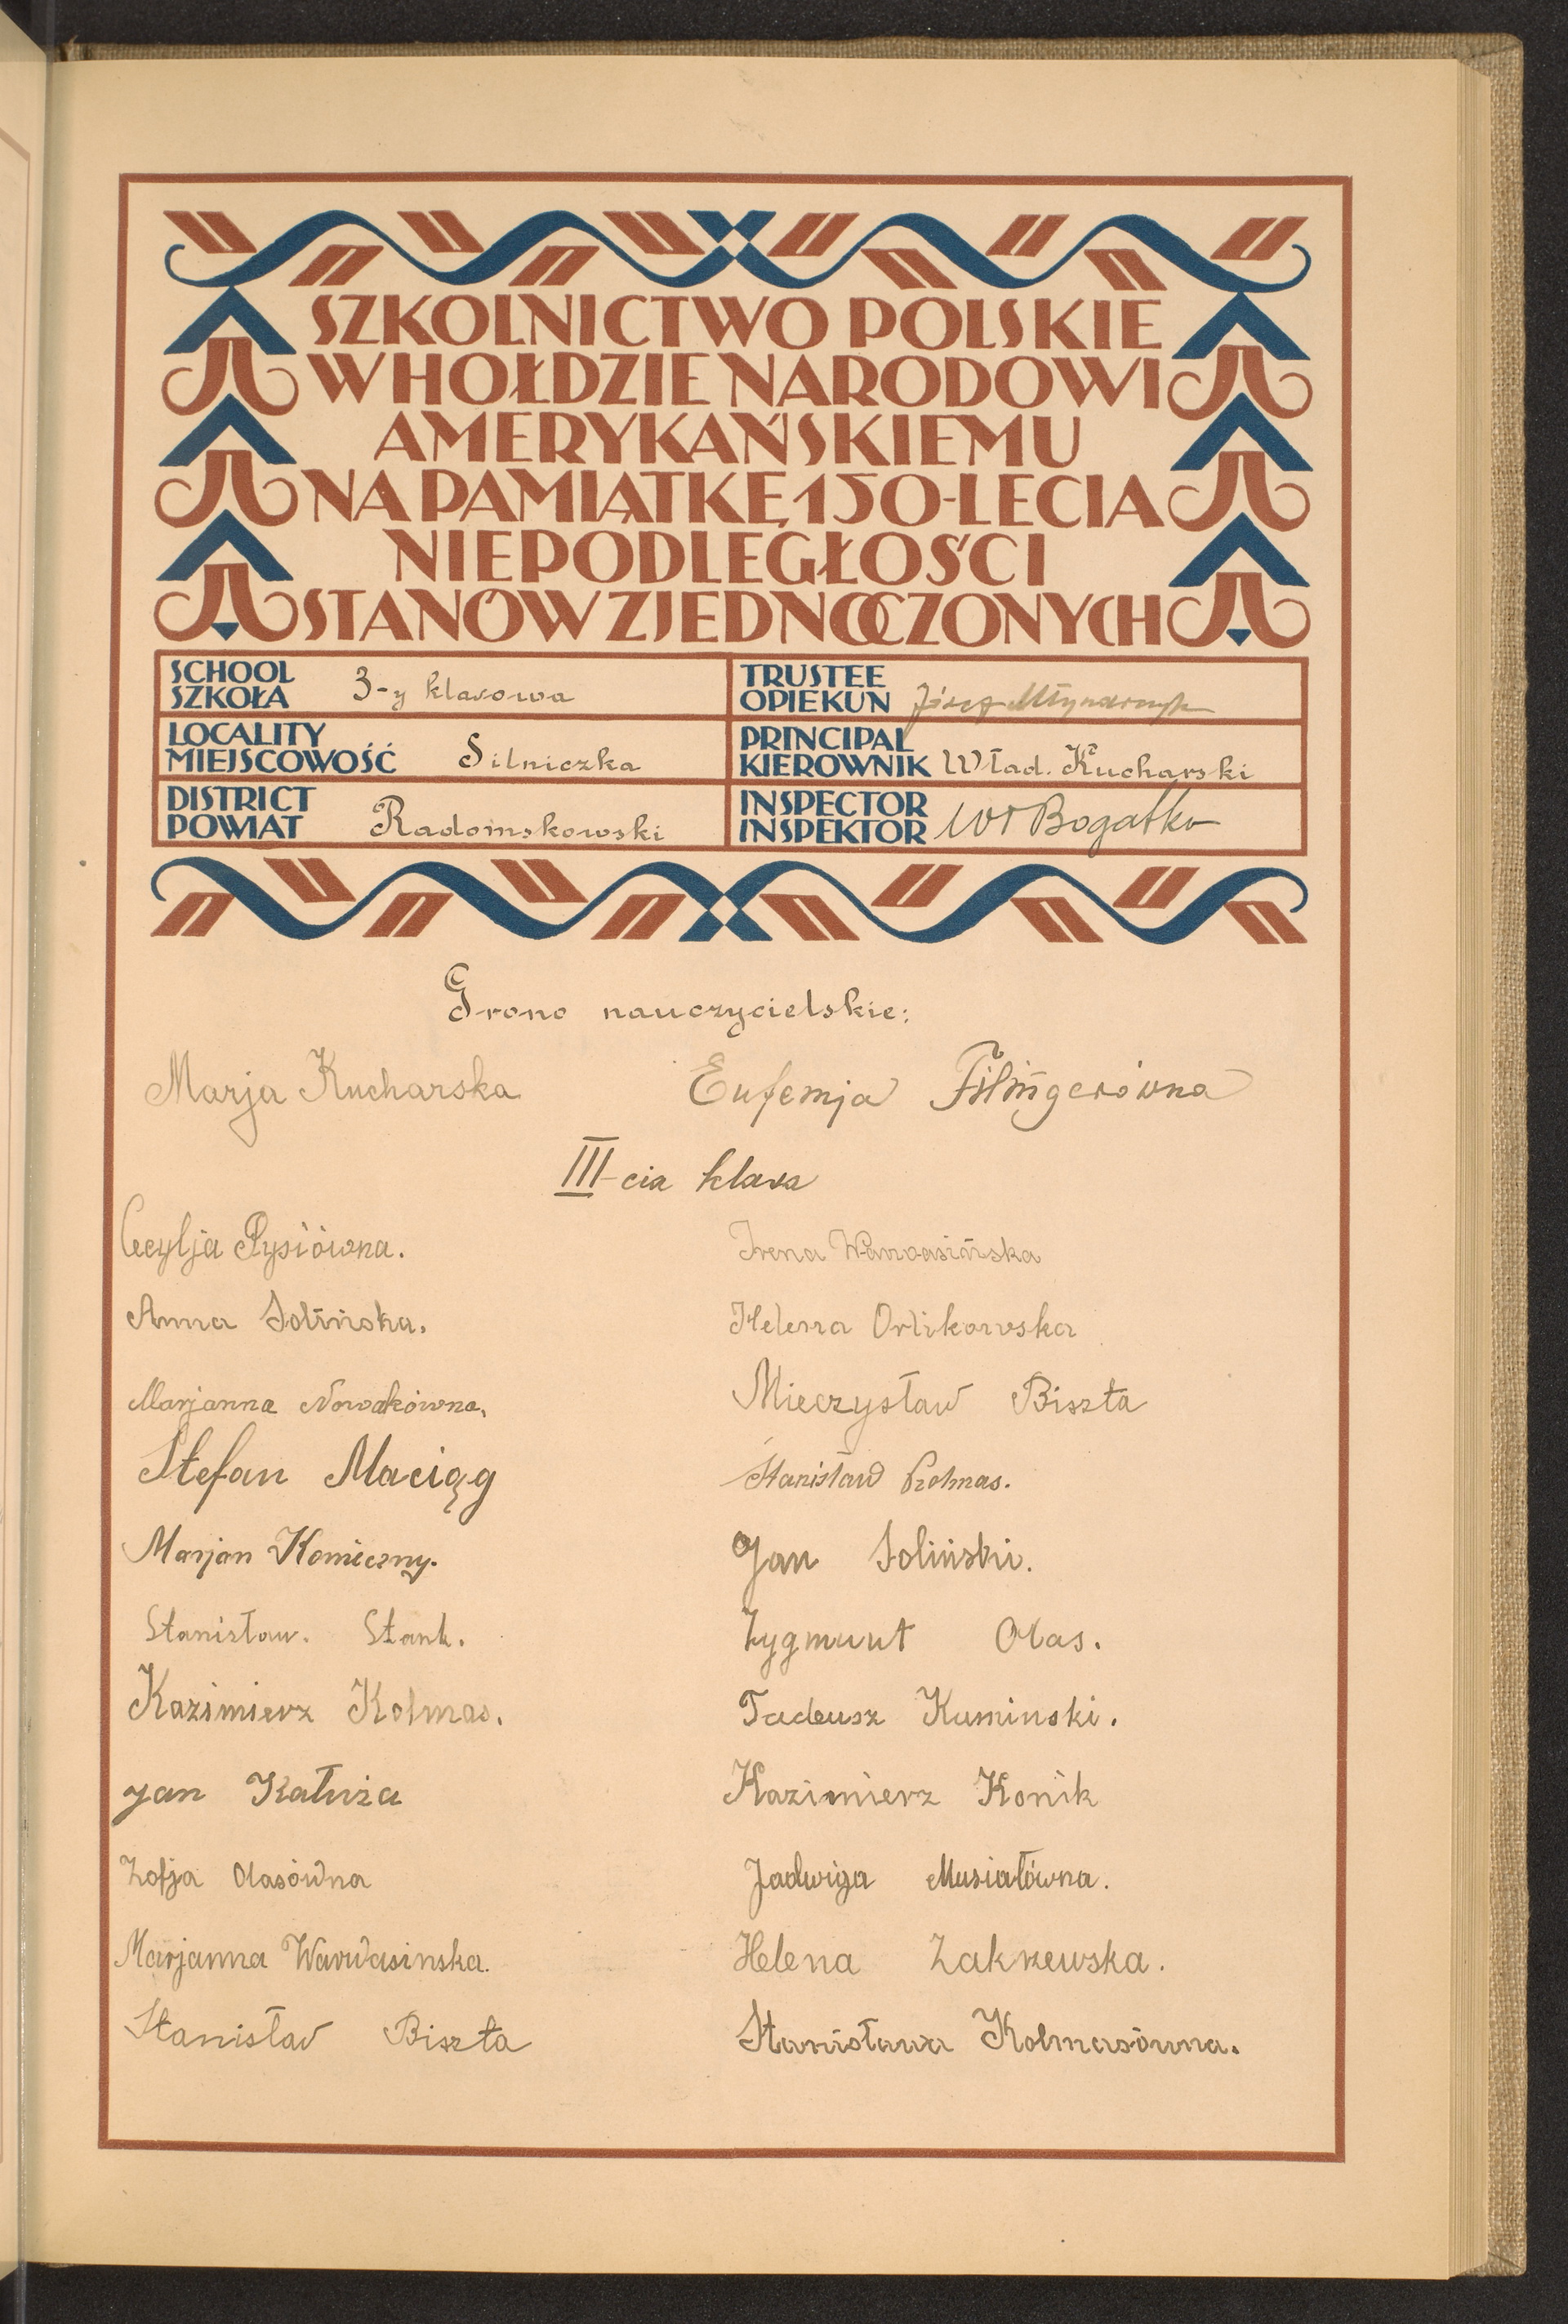 SZKOLNICTWO POLSKIE
W HOŁDZIE NARODOWI
AMERYKAŃSKIEMU
NA PAMIĄTKĘ 150-LECIA
NIEPODLEGŁOŚCI
STANÓW ZJEDNOCZONYCH
SCHOOL
SZKOŁA 3-y klasowa
TRUSTEE
OPIEKUN Józef Młynarczyk
LOCALITY
MIEJSCOWOŚĆ Silniczka
PRINCIPAL
KIEROWNIK Wład. Kucharski
DISTRICT
POWIAT Radomskowski
INSPECTOR
INSPEKTOR Wł Bogatko
Grono nauczycielskie:
Marja Kucharska Eufemja Filingerówna
III-cia klasa
Cecylja Pysiówna. Irena Wawasińska
Anna Solińska. Helena Orlikowska
Marjanna Nowakówna. Mieczysław Biszta
Stefan Maciąg Stanisław
Marjan Konieczny. Jan Soliński.
Stanisław. Stank. Zygmunt Olas.
Kazimierz Kolmas. Tadeusz Kuminski.
Jan Kałuża Kazimierz Konik
Zofja Olasówna Jadwiga Musiałówna.
Marjanna Wawasinska. Helena Zakrzewska.
Stanisław Biszta Stanisława Kolmasówna.